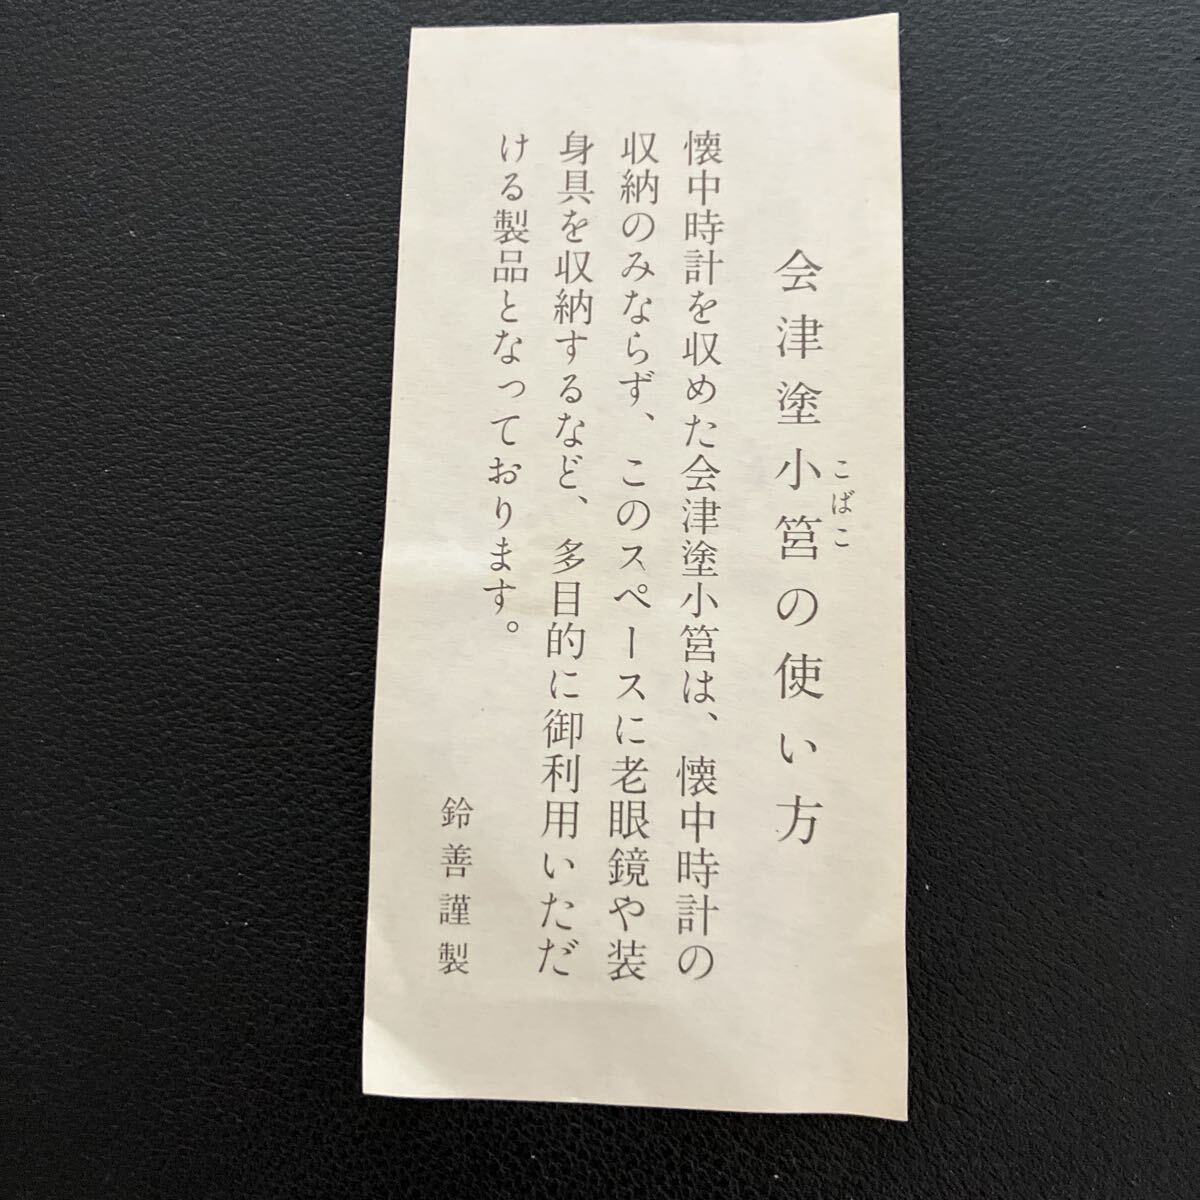 会津塗小筥の使い方
こばこ
懐中時計を収めた会津塗小筥は、懐中時計の
収納のみならず、このスペースに老眼鏡や装
身具を収納するなど、多目的に御利用いただ
ける製品となっております。
鈴善謹製